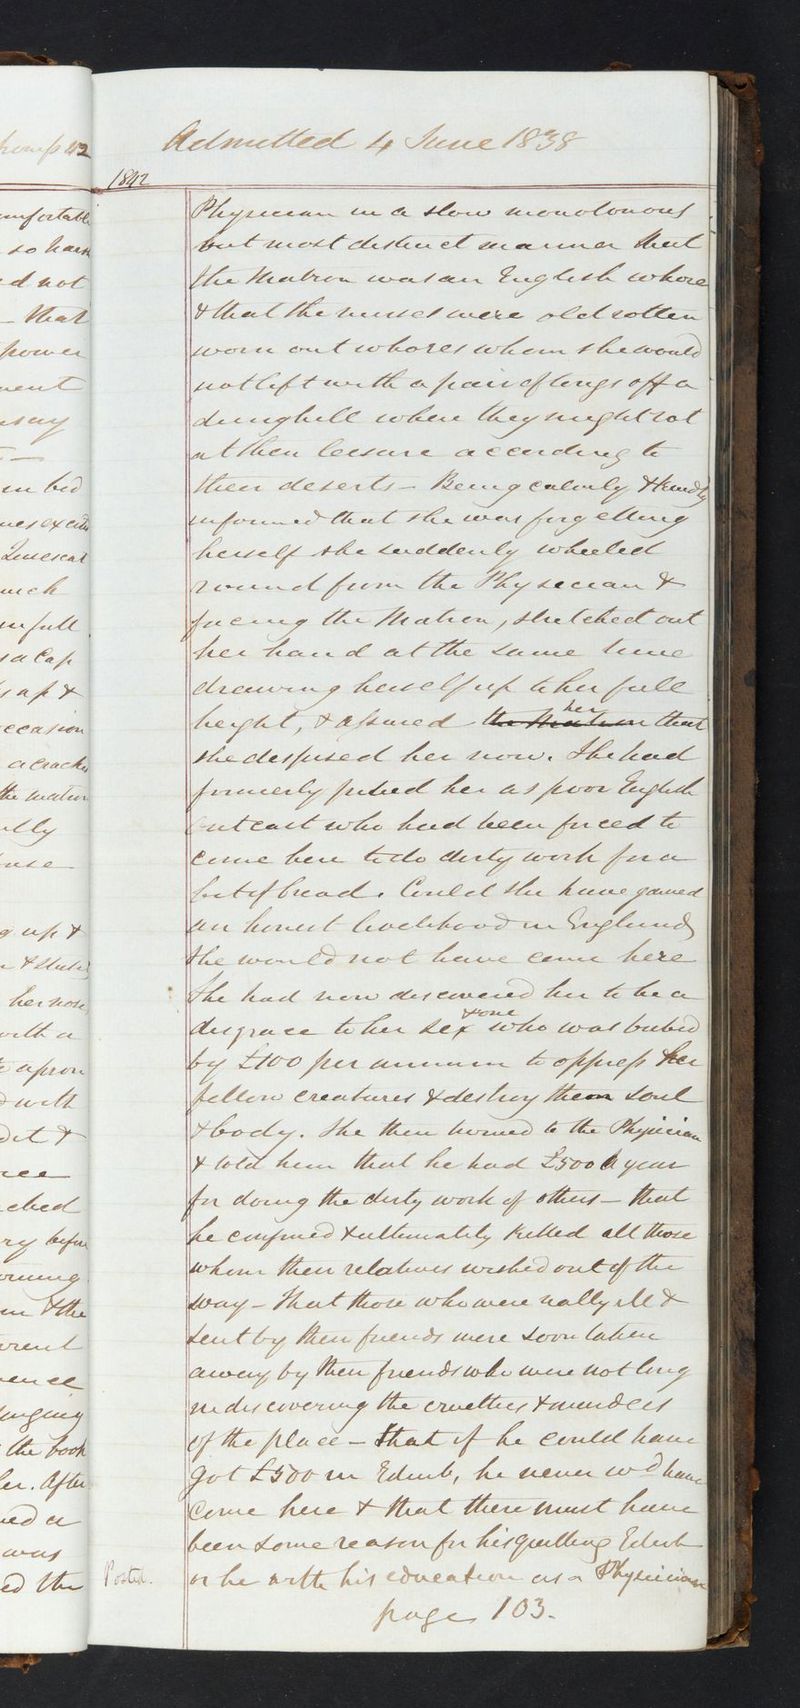 Admitted 4 June 1838
1842
Physician in a slow monotonous
but most distinct manner that
the Matron was an English whore
& that the nurses were old rotten
worn out whores whom she would
not lift with a pair of tongs off a
dunghill where they might rot
at their leisure according to
their deserts – Being calmly & kindly
informed that she was forgetting
herself she suddenly wheeled
round from the Physician &
facing the Matron, stretched out
her hand at the same time
drawing herself up to her full
height, & assured the Matron her that
she despised her now. She had
formerly pitied her as poor English
outcast who had been forced to
come here to do dirty work for a
bit of bread. Could she have gained
an honest livelihood in England
she would not have come here
She had now discovered her to be a
disgrace to her sex & one who was bribed
by £100 per annum to oppress her
fellow creatures & destroy them soul
& body. She then turned to the Physician
& told him that he had £500 a year
for doing the dirty work of others – that
he confined & ultimately killed all those
whom their relatives wished out of the
way – That those who were really ill &
sent by their friends were soon taken
away by their friends who were not long
in discovering the cruelties & murders
of the place – that if he could have
got £500 in Edinb, he never wd have
come here & that there must have
been some reason for his quitting Edinb
or he with his education as a Physician
Posted.
page 103.
omfortable
so harsh
d not
– that
power
ment
say
in bed
much
in full
a cap
up &
occasion
a cracked
the matron
ally
up &
her nose
with a
apron
with
&
before
& the
the book
her. After
was
ed the